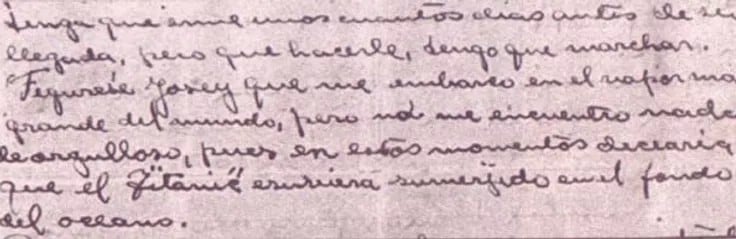 tenga que irme unos cuantos dias antes de su
llegada, pero que hacerle, tengo que marchar.
Figurese Josey que me embarco en el vapor ma
grande del mundo, pero no me encuentro nada
de orgulloso, pues en estos momentos desearia
que el "Titanic" estuviera sumerjido en el fondo
del oceano.